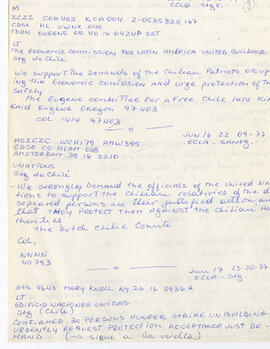 M
ECLA Stgo. (3)
ZCZC COA402 KCA004 2-053532E167
CDSA HL UWNX 040
TDRN EUGENE OR 40 16 0424P EST
LT
the Economic Commission for LATIN AMERICA UNITED BUILDING
Stg de Chile
We support the Demands of the Chilean Patriots occup
ing the Economic Comission and urge protection of th
Safety
The Eugene Committee for A Free Chile 1414 Ki
Kaid Eugene Oregon 97403
COL 1414 97403
Jun 16 22 09-77
ECLA - SANtg.
MSZCZC WCH179 AMW395
CDSG CO NLAM 038
AMSTERDAM 38 16 2210
UNATIONS
Stg de Chile
- We strongly demand the officials of the United Na
tions to support the Chilean relatives of the di
sepeared persons in their justified action an
that they PROTECT them against the Chilian A
thorities
the Dutch Chilie Comite
COL,
NNNN
40793
Jun 17 13-20-77
ECLA - Stg.
GTS 4643 MARY KNOLL NY 20 16 0936A
LT
EDIFICIO NACIONES UNIDAS
Stg (Chile)
CONFIRMED 30 PERSONS HUNGER STRIKE UN BUILDING
URGENTLY REQUEST PROTECTION. ACCEPTANCE JUST DE-
MAND (→ sigue a la vuelta)